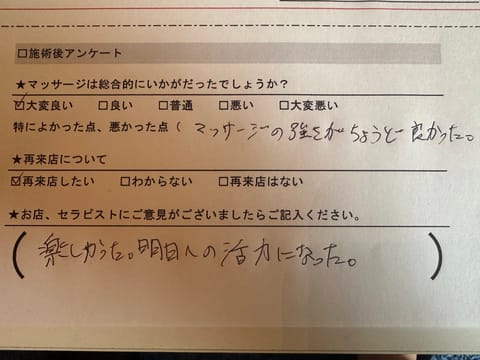 □施術後アンケート
★マッサージは総合的にいかがだったでしょうか?
☑大変良い □良い □普通 □悪い □大変悪い
特によかった点、悪かった点(マッサージの強さがちょうど良かった。
★再来店について
☑再来店したい □わからない □再来店はない
★お店、セラピストにご意見がございましたらご記入ください。
(楽しかった。明日への活力になった。)